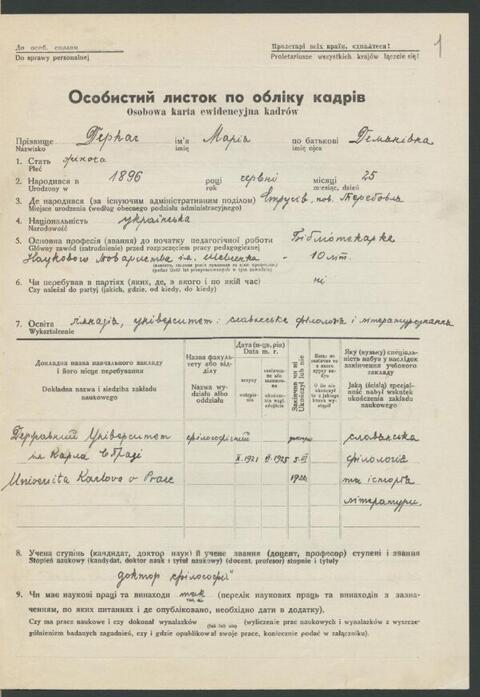 1
До особ. справи
Do sprawy personalnej
Пролетарі всіх країн, єднайтеся!
Proletariusze wszystkich krajów łączcie się!
Особистий листок по обліку кадрів
Osobowa karta ewidencyjna kadrów
Прізвище Деркач ім'я Марія по батькові Дем'янівна
Nazwisko imię imię ojca
1. Стать жіноча
Płeć
2. Народився в 1896 році червні місяці 25
Urodzony w rok miesiąc, dzień
3. Де народився (за існуючим адміністративним поділом) Струсів, пов. Теребовля
Miejsce urodzenia (według obecnego podziału administracyjnego)
4. Національність українська
Narodowość
5. Основна професія (звання) до початку педагогічної роботи Бібліотекарка
Główny zawód (zatrudnienie) przed rozpoczęciem pracy pedagogicznej
Наукового Товариства ім. Шевченка - 10 літ.
6. Чи перебував в партіях (яких, де, з якого і по який час) ні
Czy należał do partyj (jakich, gdzie, od kiedy, do kiedy)
7. Освіта гімназія, університет: славянська філологія і літературознавство
Wykształcenie
Докладна назва навчального закладу і його місце перебування
Dokładna nazwa i siedziba zakładu naukowego
Назва факультету або відділу
Nazwa wydziału albo oddziału
Дата (м-ць, рік)
Data m. r.
вступу
Закінчив чи ні
Ukończył lub nie
Яку (вузьку) спеціальність набув у наслідок закінчення учбового закладу
Jaką (ścisłą) specjalność nabył wskutek ukończenia zakładu naukowego
Державний Університет філософічний славянська
ім Карла в Празі X.1921 1925 філологія
Universita Karlova v Praze та історія
літератури.
8. Учена ступінь (кандидат, доктор наук) й учене звання (доцент, професор) ступені і звання
Stopień naukowy (kandydat, doktor nauk i tytuł naukowy) (docent, profesor) stopnie i tytuły
доктор філософії
9. Чи має наукові праці та винаходи так (перелік наукових праць та винаходів з зазна-
так, ні
ченням, по яких питаннях і де опубліковано, необхідно дати в додатку).
Czy ma prace naukowe i czy dokonał wynalazków (tak lub nie) (wyliczenie prac naukowych i wynalazków z wyszcze-
gólnieniem badanych zagadnień, czy i gdzie opublikował swoje prace, koniecznie podać w załączniku).